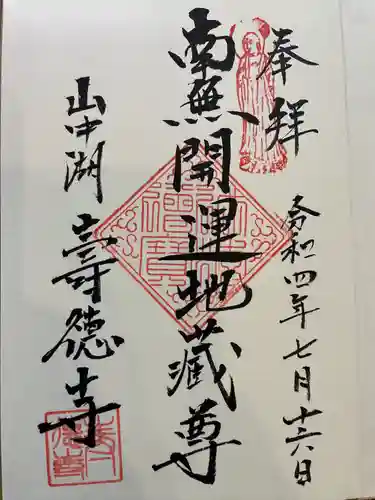 奉拝
令和四年七月十六日
南無開運地蔵尊
山中湖
壽徳寺